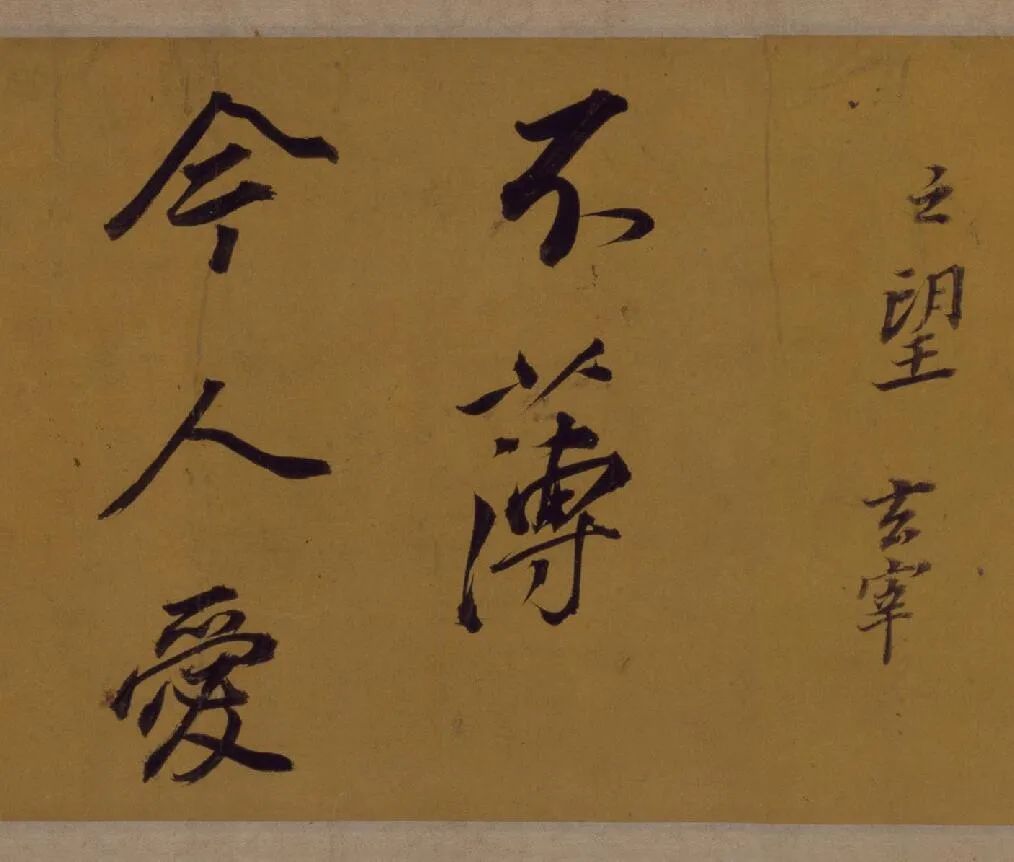 之望玄宰
不薄
今人愛